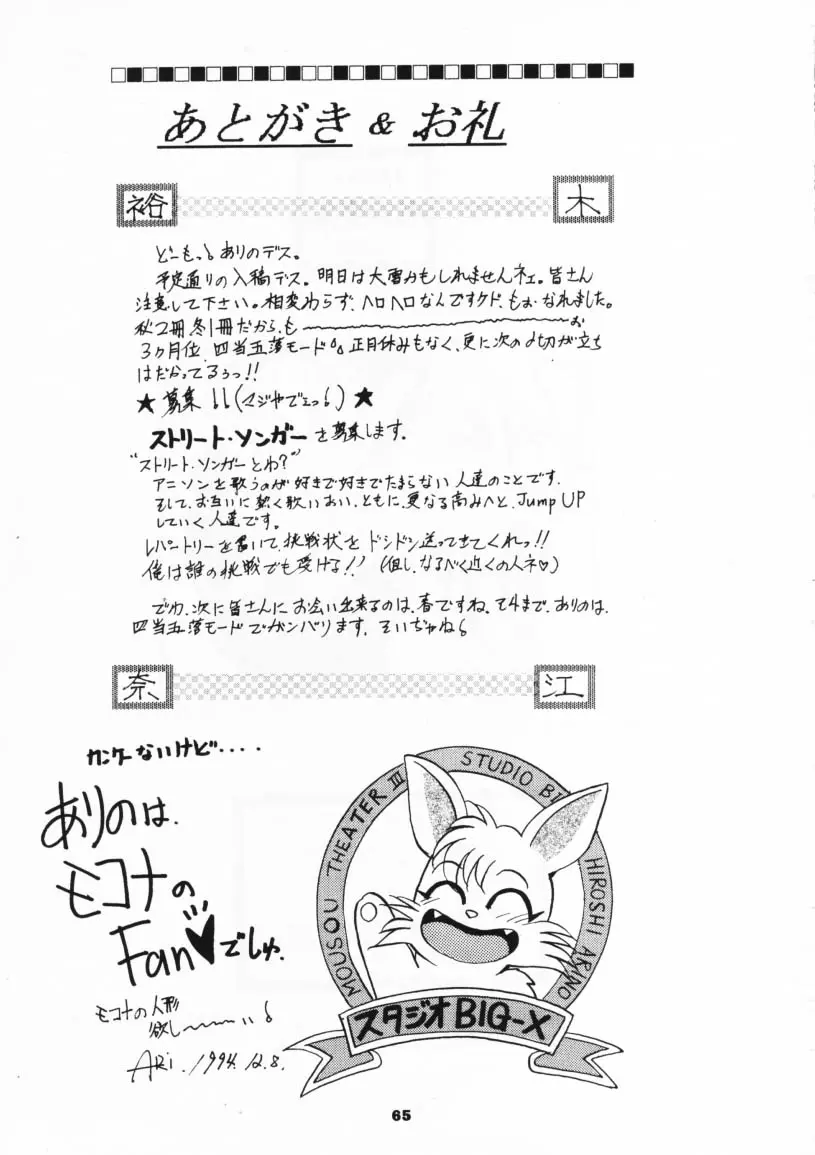 あとがき & お礼
裕 木
どーもっ♂ ありのデス。
予定通りの入稿デス。明日は大雪かもしれませんネェ。皆さん
注意して下さい。相変わらず、ヘロヘロなんですケド、もぉ、なれました。
秋2冊冬1冊だから、も〜〜〜〜〜ぉ
3ヶ月位、四当五落モード。正月休みもなく、更に次の〆切が立ち
はだかってるぅっ!!
★募集!!(マジやでェっ♂)★
ストリート・ソンガーを募集します。
"ストリート・ソンガーとわ?"
アニソンを歌うのが好きで好きでたまらない人達のことです。
そして、お互いに熱く歌いあい、ともに、更なる高みへと、Jump UP
していく人達です。
レパートリーを書いて、挑戦状をドシドシ送ってきてくれっ!!
俺は誰の挑戦でも受けな!! (但し、なるべく近くの人ネ♡)
でわ、次に皆さんにお会い出来るのは、春ですね。それまで、ありのは、
四当五落モードでガンバリます。そいぢゃね♂
奈 江
カンケーないけど‥‥
ありのは、
モコナの
Fan♥でしゅ。
モコナの人形
欲し〜〜〜い♂
ARI. 1994.12.8.
MOUSOU THEATER III STUDIO BI HIROSHI ARINO
スタジオBIG-X
65